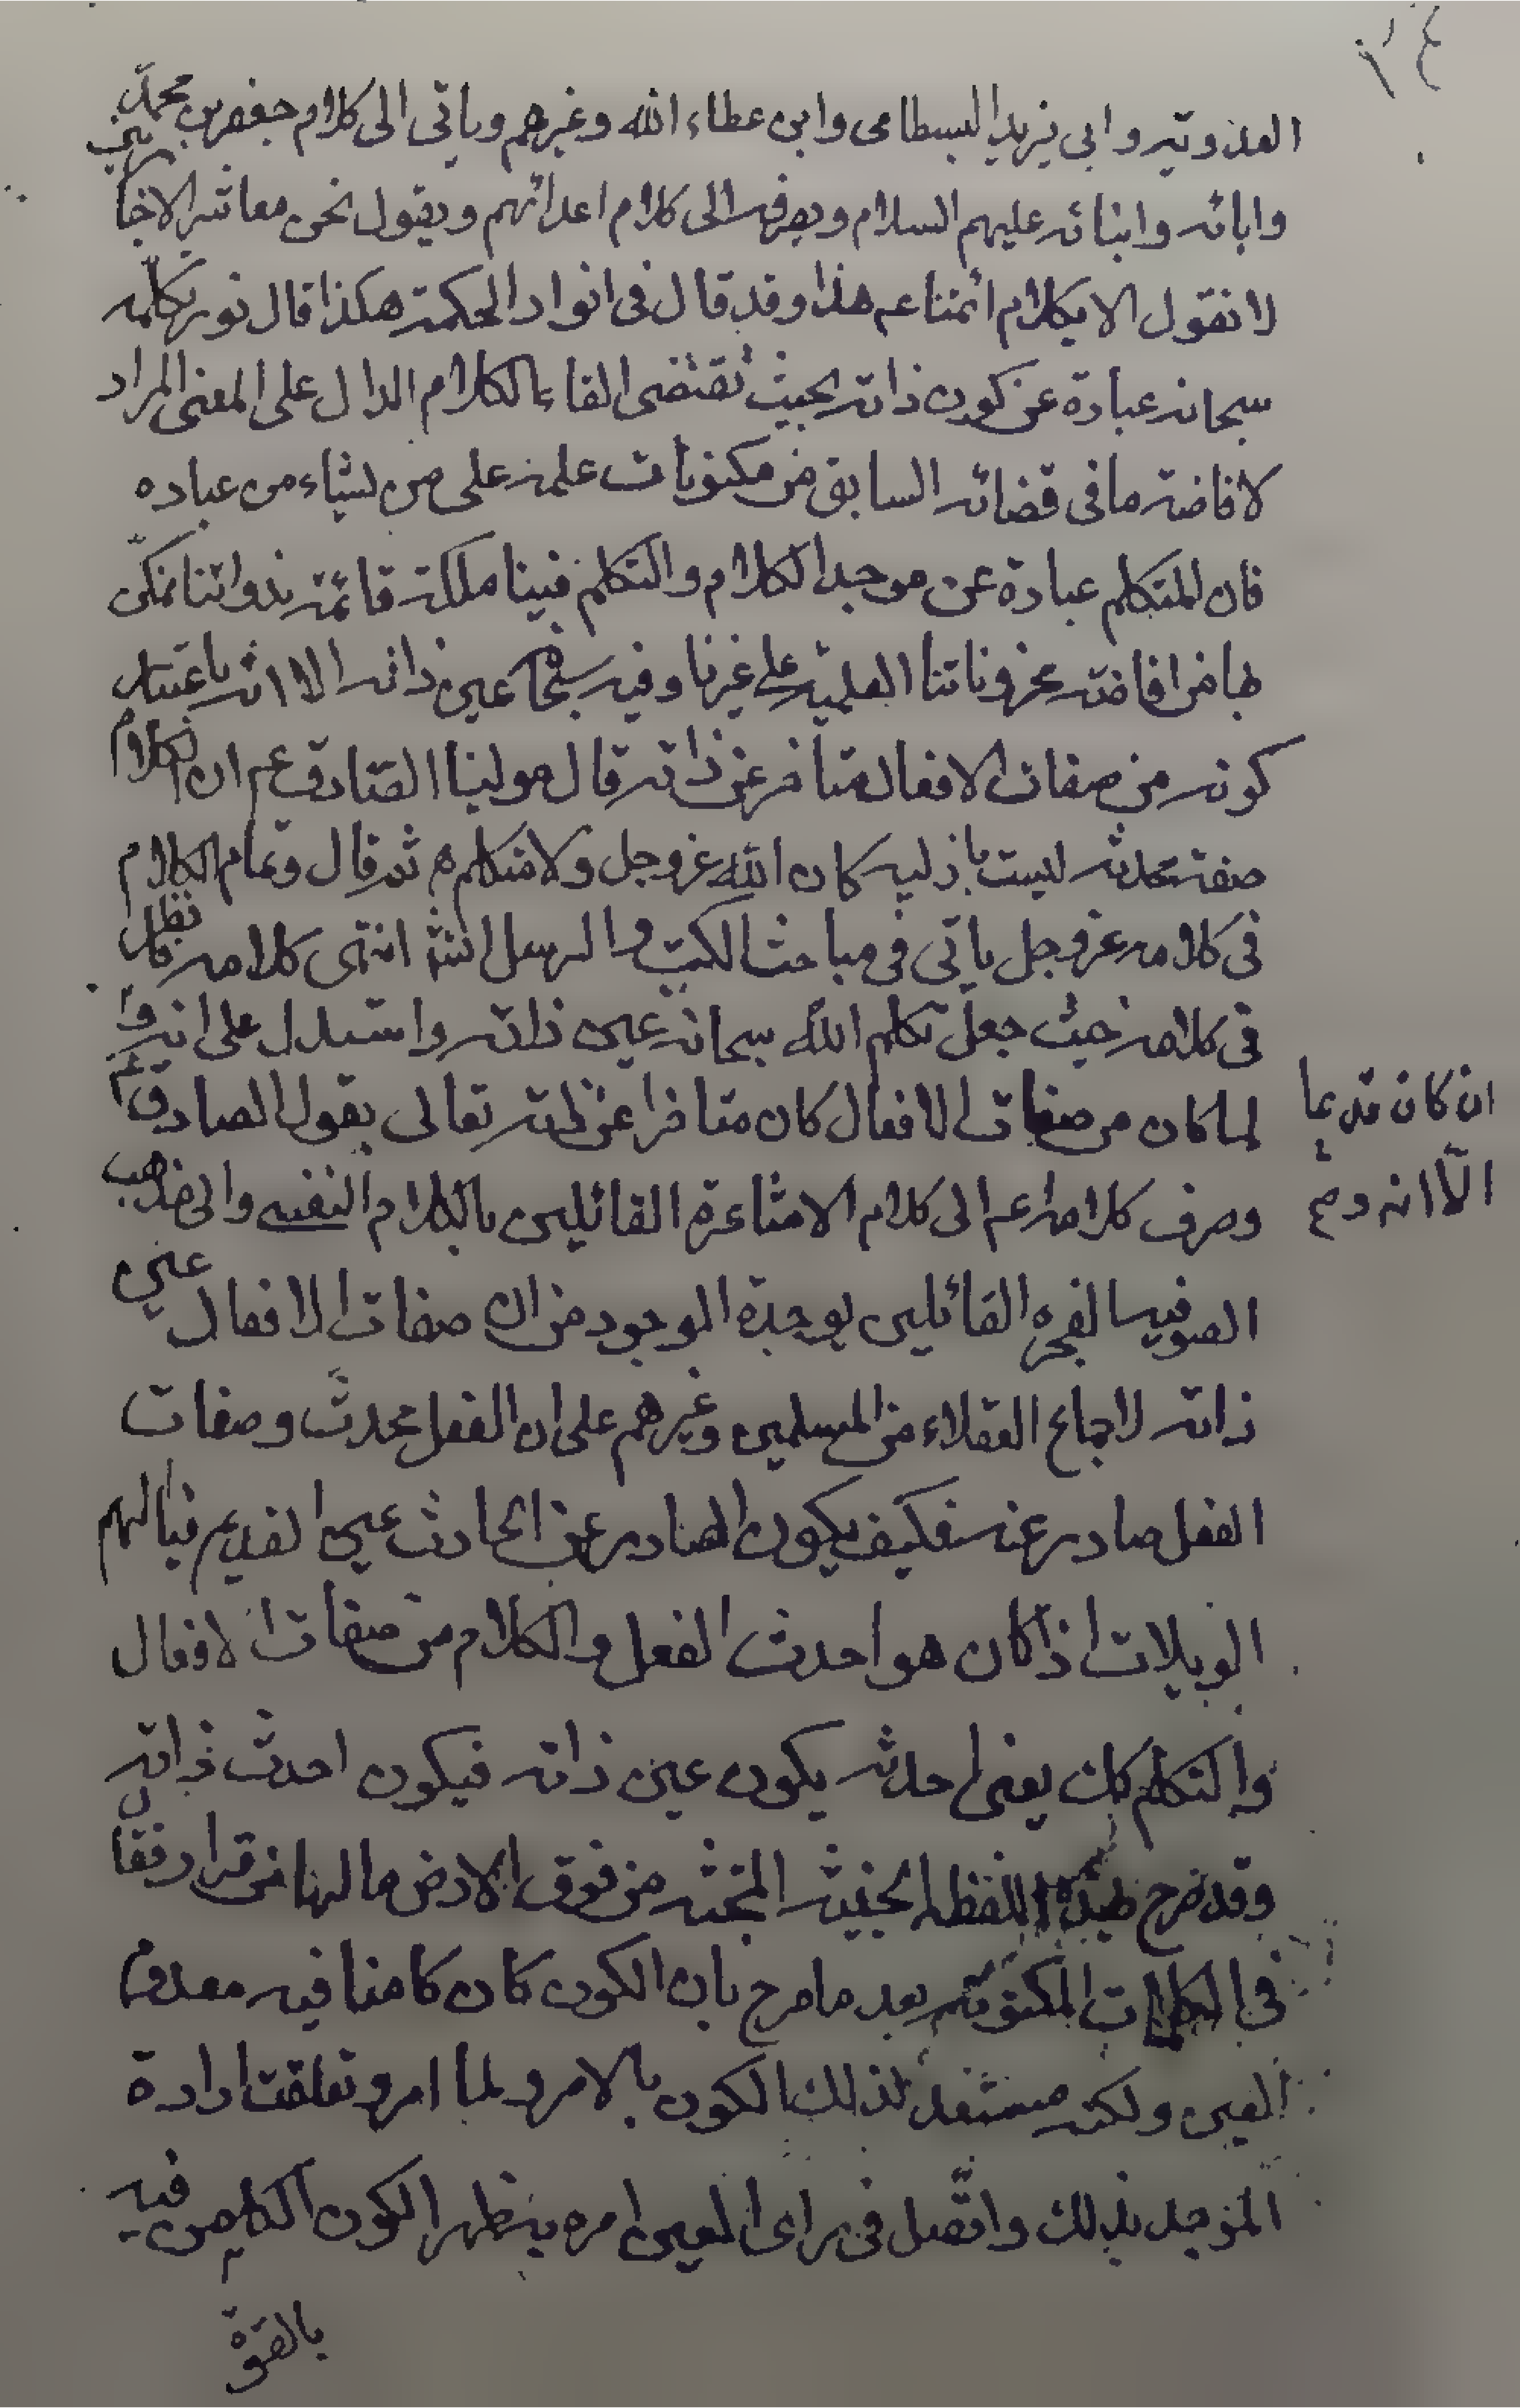 العدوية وابي يزيد البسطامى وابن عطاء الله وغيرهم وياتى الى كلام جعفر بن محمد
وابائه وابنائه عليهم السلام ويصرفه الى كلام اعدائهم ويقول نحن معاشر الاخبا ريين
لا نقول الا بكلام ائمتنا عم هذا وقد قال فى انوار الحكمة هكذا قال نور تكلمه
سبحانه عبارة عن كون ذاته بحيث تقتضى القاء الكلام الدال على المعنى المراد
لافاضة ما فى قضائه السابق من مكنونات علمه على من يشاء من عباده
فان المتكلم عبارة عن موجد الكلام والتكلم فينا ملكة قائمة بذواتنا نتمكن
بها من افاضة مخزوناتنا العلمية على غيرنا وفيه سبحانه عين ذاته الا انه باعتبار
كونه من صفات الافعال متاخر عن ذاته قال مولينا الصادق عم ان الكلام
صفة محدثه ليست بازليه كان الله عز وجل ولا متكلم ثم قال وتمام الكلام
فى كلامه عز وجل ياتى فى مباحث الكتب والرسل انشا انتهى كلامه فانظر
فى كلامه حيث جعل تكلم الله سبحانه عين ذاته واستدل على انه و
ان كان قديما
الا انه صح
لما كان من صفات الافعال كان متاخرا عن ذاته تعالى بقول الصادق عم
وصرف كلامه عم الى كلام الاشاعرة القائلين بالكلام النفسى والى مذهب
الصوفيه الفجره القائلين بوحدة الموجود من ان صفات الافعال عين
ذاته لاجماع العقلاء من المسلمين وغيرهم على ان الفعل محدث وصفات
الفعل صادر عنه فكيف يكون الصادر عن الحادث عين القديم فيا لهم
الويلات اذا كان هو احدث الفعل والكلام من صفات الافعال
والتكلم كك يعنى احدثه يكون عين ذاته فيكون احدث ذاته
وقد صرح بهذه اللفظه الخبيثه المجتثه من فوق الارض ما لها من قرار فقال
فى الكلمات المكنونه بعد ما صرح بان الكون كان كامنا فيه معدوم
العين ولكنه مستعد لذلك الكون بالامر ولما امر وتعلقت ارادة
الموجد بذلك واتصل فى راى العين امره به ظهر الكون الكامن فيه
بالقوة